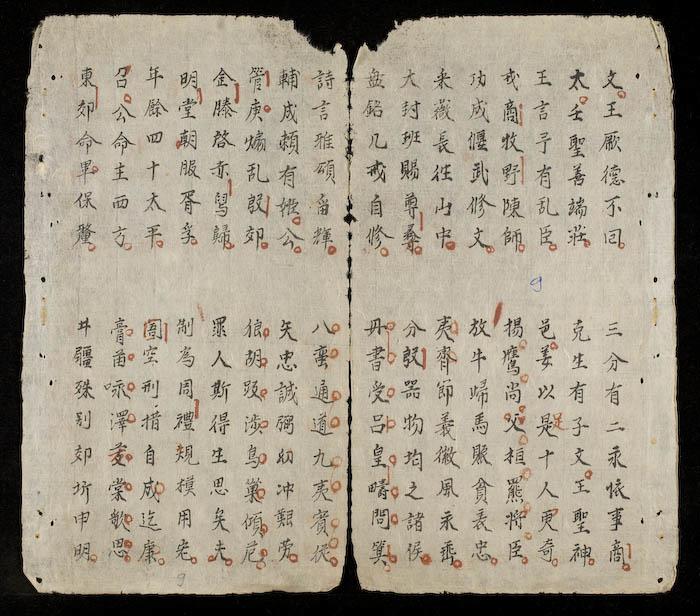 文王厥德不回
三分有二永依事商
太任聖善端莊
克生有子文王聖神
王言予有乱臣
邑姜以是十人更奇
足
戎商牧野陳師
揚鷹尚父桓羆將臣
功成偃武修文
放牛歸馬賑貧表忠
采薇長往山中
夷齊節義徽風永垂
大封班賜尊彝
分殷器物均之諸侯
盘銘几戒自修
丹書受吕皇疇問箕
9
詩言雅頌畱輝
八蛮通道九夷賓從
輔成頼有姬公
矢忠誠弼幼冲艱劳
管庚煽乱殷郊
狼胡跋涉鳥巢傾危
金縢啓亦舄歸
罪人斯得生思矣夫
明堂朝服胥孚
制為周禮規模用宏
年餘四十太平
囹空刑措自成迄康
召公命主西方
膏苗咏澤茇棠歌思
東郊命畢保釐
井疆殊别郊圻申明
9